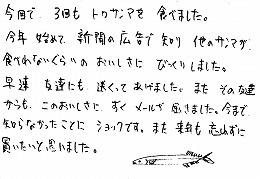 今回で、3回も トロサンマを 食べました。
今年 始めて、新聞の広告で 知り 他のサンマが、
食べれないくらいの おいしさに びっくりしました。
早速 友達にも 送ってあげました。また その友達
からも、このおいしさに すぐ メールで 返きました。今まで
知らなかったことに ショックです。また 来年も 忘れずに
買いたいと思いました。